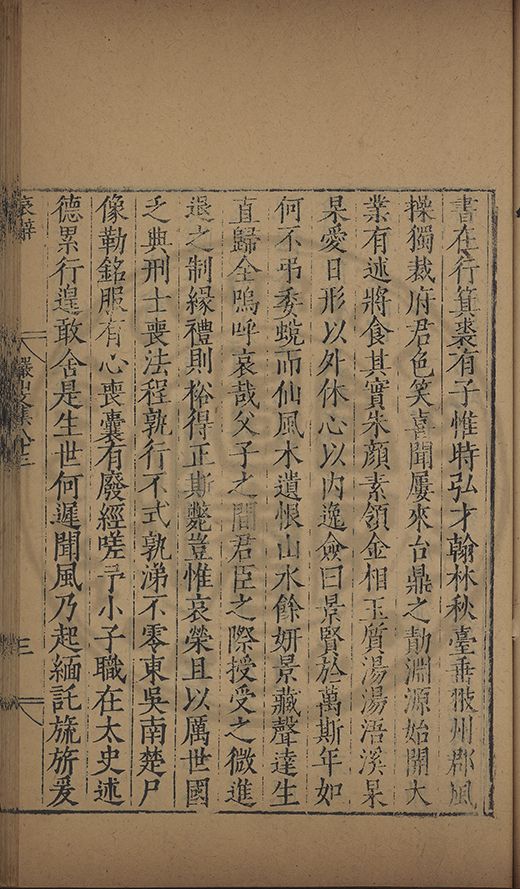 書在行箕裘有子惟時弘才翰林秋臺垂猷州郡風
操獨裁府君色笑喜聞屢來台鼎之勣淵源始開大
業有述將食其實朱顏素領金相玉質湯湯浯溪杲
杲愛日形以外休心以内逸僉曰景賢於萬斯年如
何不弔委蛻而仙風木遺悵山水餘妍景藏聲達生
直歸全嗚呼哀哉父子之間君臣之際授受之微進
退之制緣禮則裕得正斯斃豈惟哀榮且以厲世國
乏典刑士喪法程孰行不式孰涕不零東吳南楚尸
像勒銘服有心喪囊有廢經嗟予小子職在太史述
德累行遑敢舍是生世何遲聞風乃起緬託旐旂爰
哀辭
三